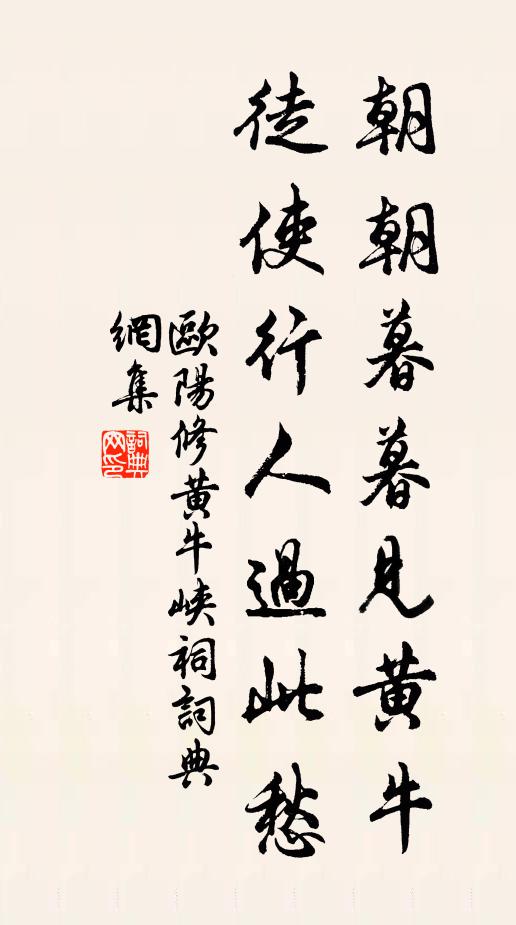 朝朝暮暮見黃牛
徒使行人過此愁
歐陽修黃牛峽祠詞典
網集
詞典网印